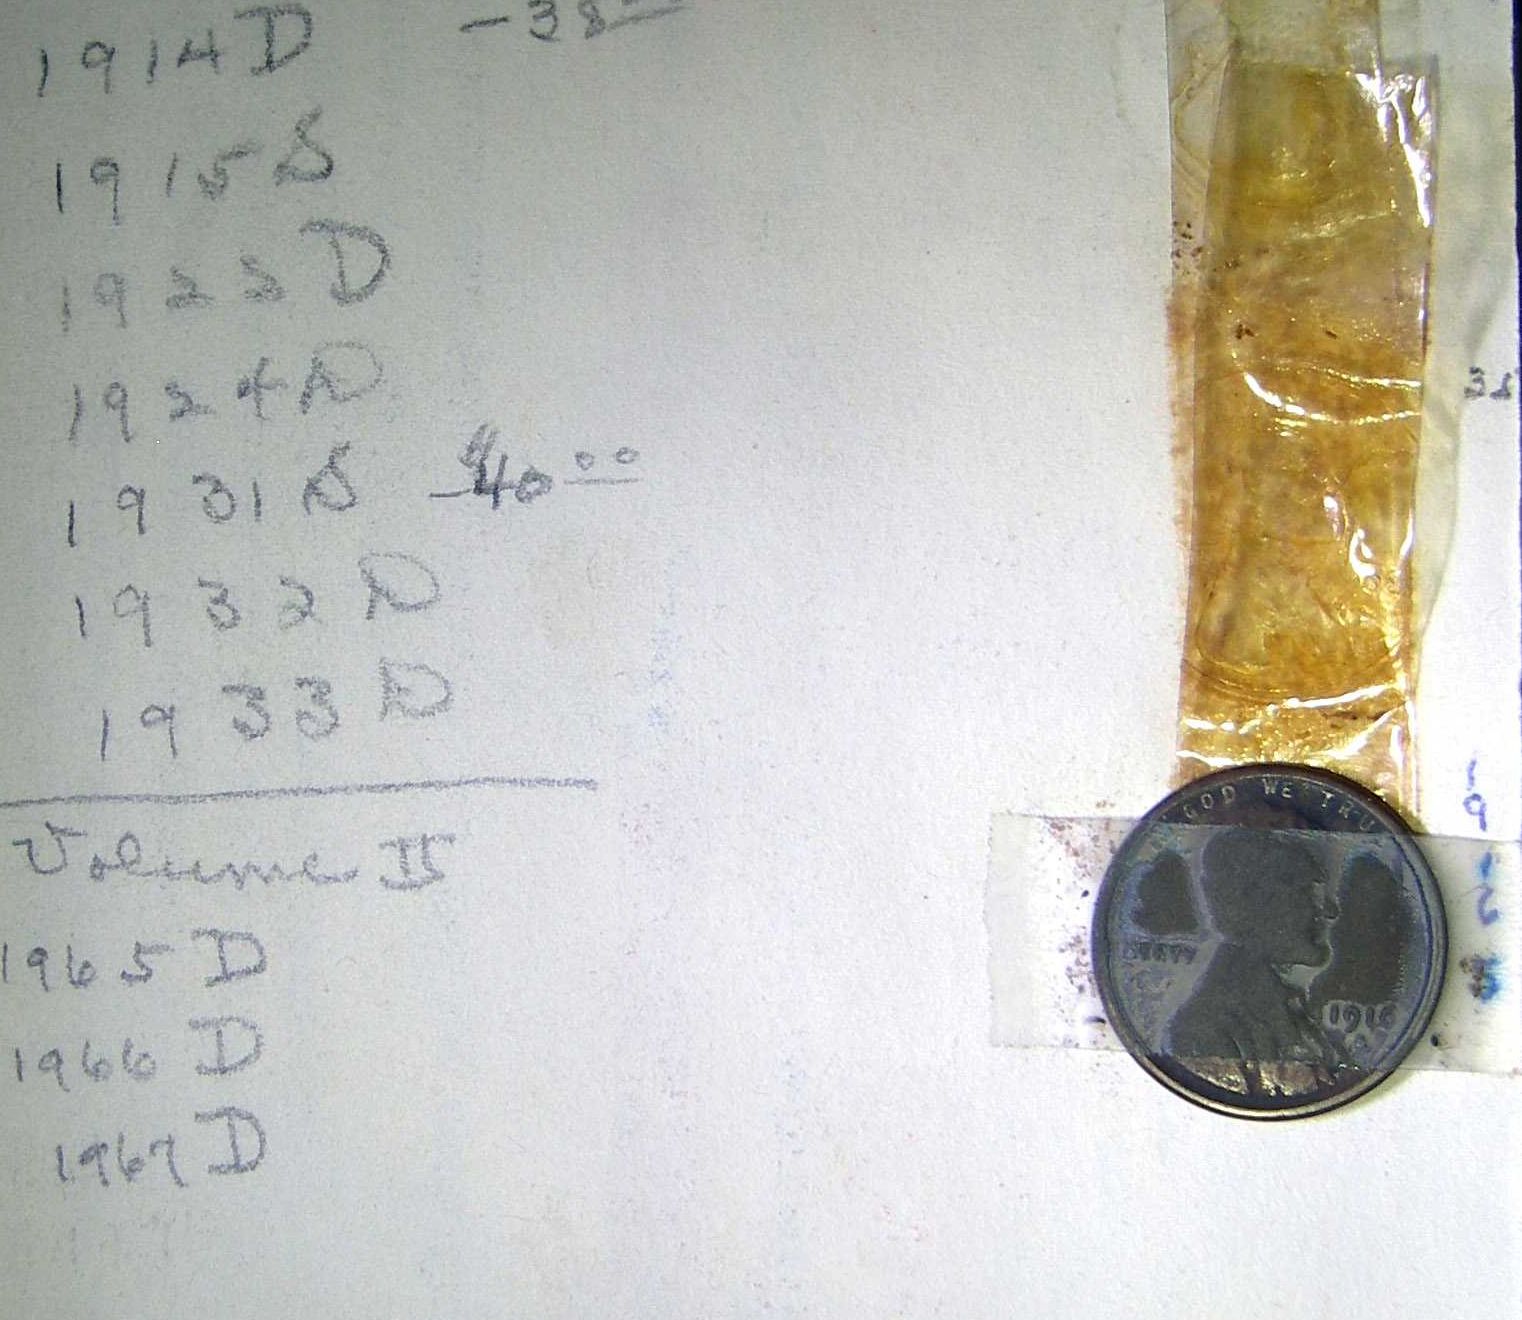 1914 D -38
1915 S
1922 D
1924 D
1931 S $40 00
1932 D
1933 D
Volume II
1965 D
1966 D
1967 D
GOD WE TRU